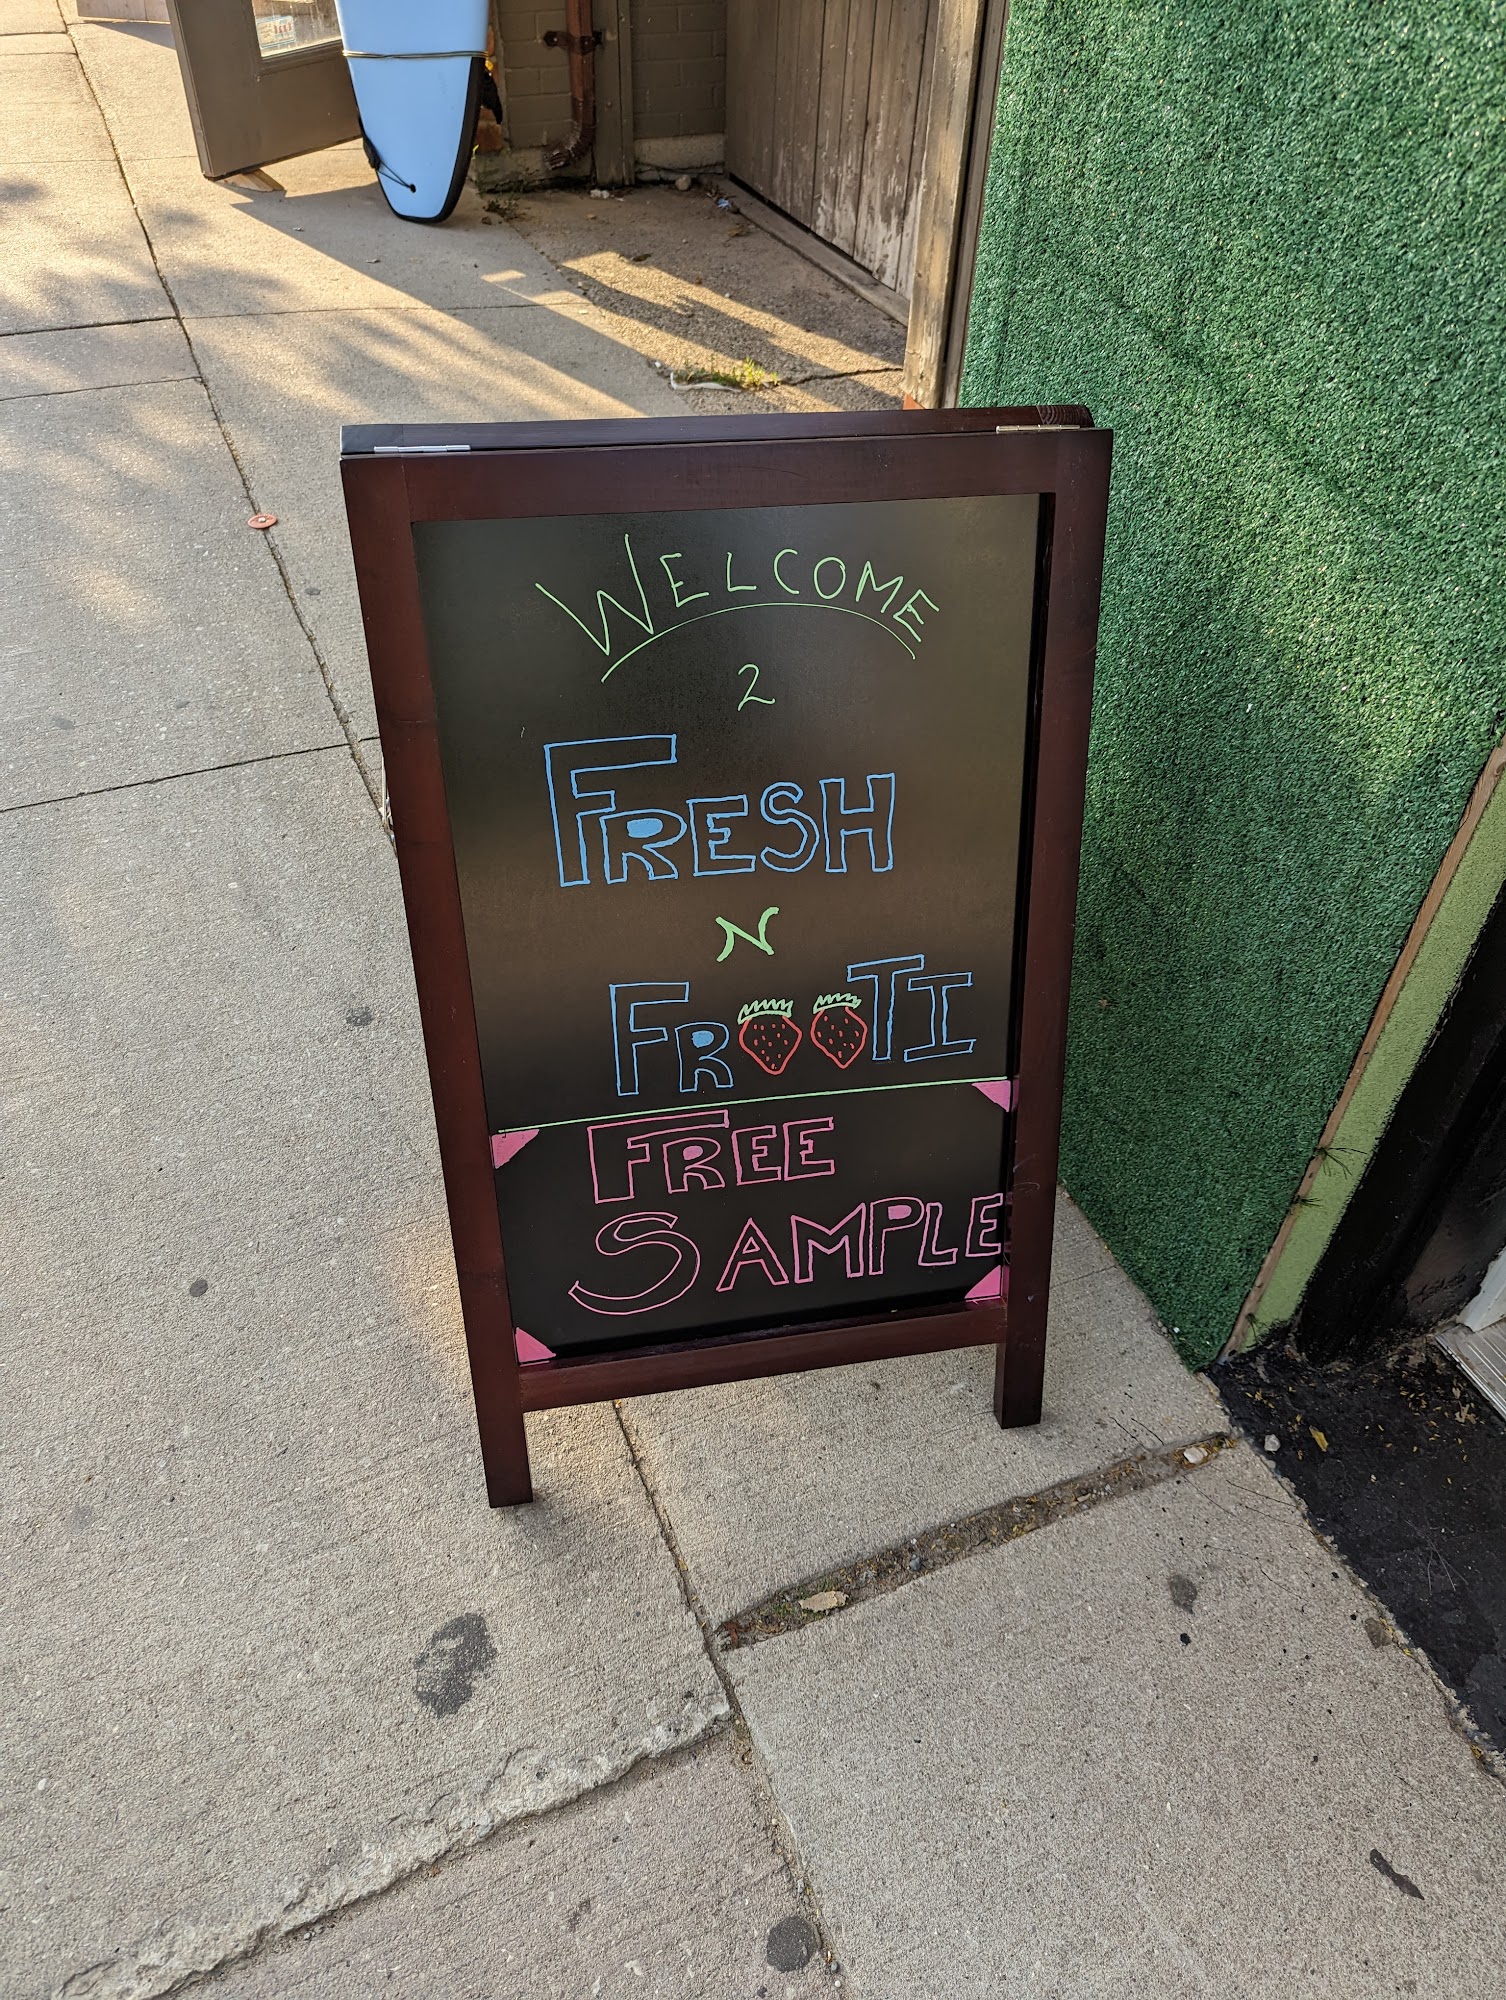 WELCOME
2
FRESH
N
FROOTI
FREE
SAMPLE